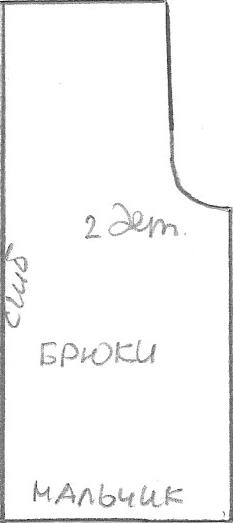 2 дет.
сгиб
БРЮКИ
МАЛЬЧИК